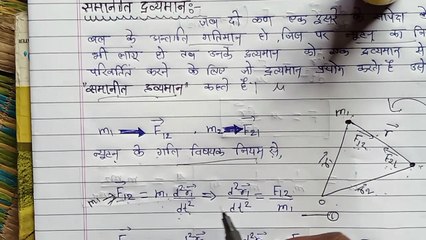 समानीत द्रव्यमान:-
जब दो कण एक दूसरे के सापेक्ष
बल के अन्तर्गत गतिमान हो, जिस पर न्यूटन का
भी लागू हो तब उनके द्रव्यमान को एक द्रव्यमान में
परिवर्तित करने के लिए जो द्रव्यमान प्रयोग करते हैं उसे
"समानीत द्रव्यमान" कहते हैं। μ
m₁ → F⃗₁₂ . m₂ → F⃗₂₁
न्यूटन के गति विषयक नियम से,
m₁ → F⃗₁₂ = m₁ d²r⃗₁/dt² ⇒ d²r⃗₁/dt² = F₁₂/m₁
①
m₁
F₁₂
r⃗
F₂₁
r⃗₁
r⃗₂
O